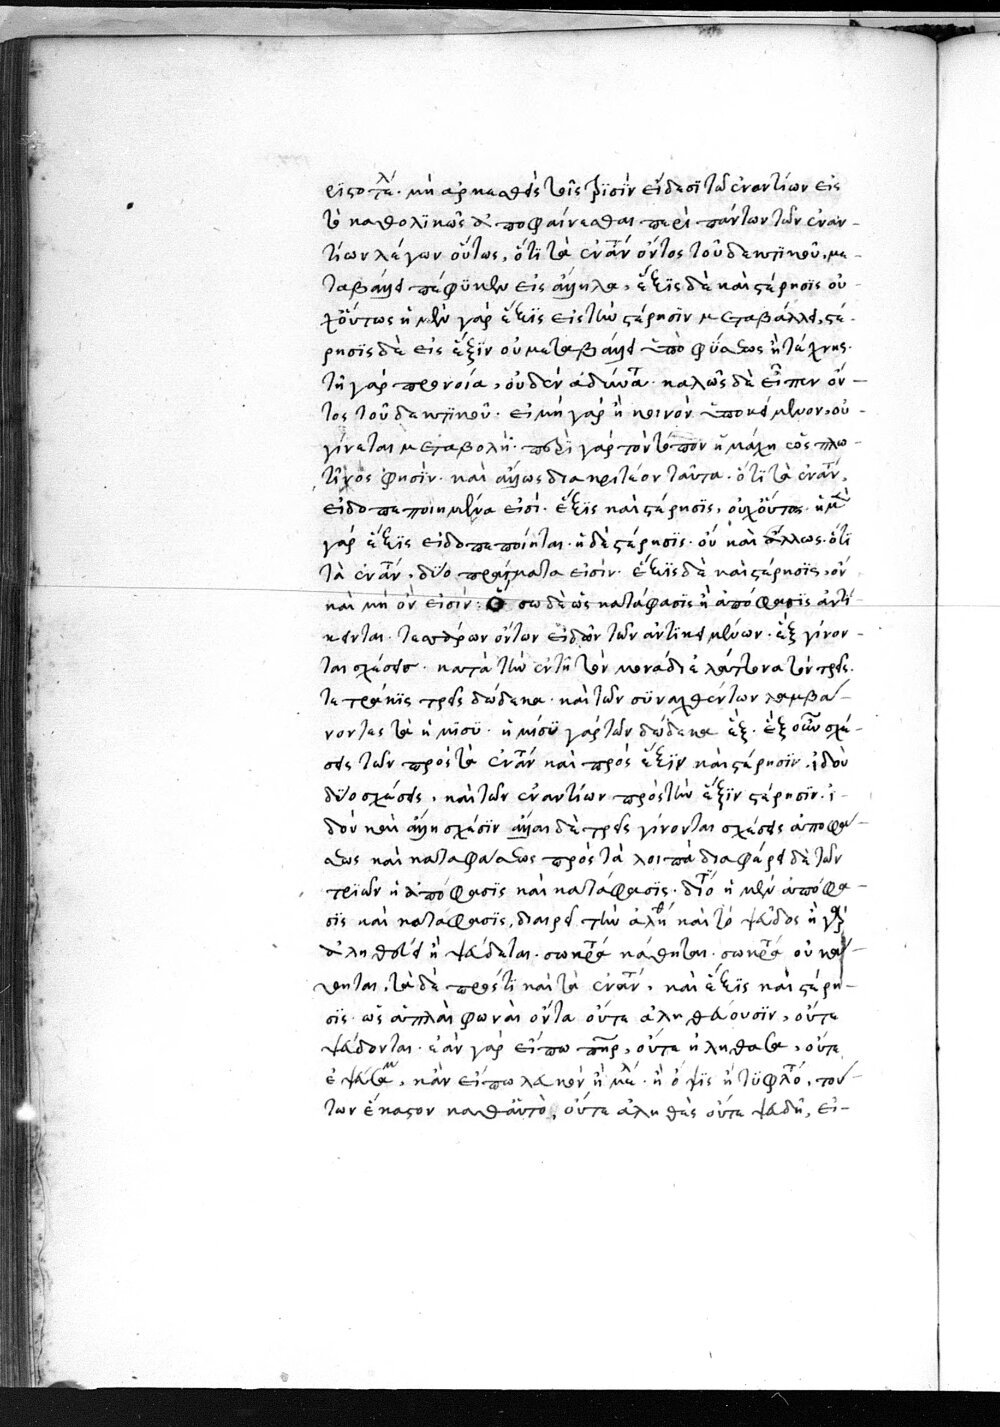 ριστοτέλ. μὴ ἀρκεσθεὶς τοῖς τρισὶν εἴδεσι τῶν ἐναντίων εἰς
τὸ καθολικῶς ἀποφαίνεσθαι περὶ πάντων τῶν ἐναν-
τίων λέγων οὕτως, ὅτι τὰ ἐναντ ὄντος τοῦ δεκτικοῦ, με-
ταβάλλειν πέφυκεν εἰς ἄλληλα, ἕξις δὲ καὶ στέρησις οὐ-
χ οὕτως ἡ μὲν γὰρ ἕξις εἰς τὴν στέρησιν μεταβάλλει, στέ-
ρησις δὲ εἰς ἕξιν οὐ μεταβάλλει ὑπὸ φύσεως ἢ τέχνης.
τῇ γὰρ προνοία, οὐδὲν ἀδύνατ. καλῶς δὲ εἶπεν ὄν-
τος τοῦ δεκτικοῦ. εἰ μὴ γὰρ ᾖ κοινὸν ὑποκείμενον, οὐ
γίνεται μεταβολή. περὶ γὰρ τὸν τόπον ἡ μάχη ὡς πλω-
τῖνος φησίν. καὶ ἄλλως διακριτέον ταῦτα. ὅτι τὰ ἐναντ,
εἰδοπεποιημένα εἰσί. ἕξις καὶ στέρησις, οὐχ οὕτως. ἡ μὲν
γὰρ ἕξις εἰδοπεποίηται. ἡ δὲ στέρησις. οὔ καὶ ἄλλως. ὅτι
τὰ ἐναντ, δύο πράγματα εἰσίν. ἕξις δὲ καὶ στέρησις, ὂν
καὶ μὴ ὂν εἰσίν: Ὅσω δὲ ὡς κατάφασις ἢ ἀπόφασις ἀντί
κεινται. τεσσάρων ὄντων εἰδῶν τῶν ἀντικειμένων. ἓξ γίνον-
ται σχέσεις. κατὰ τὴν ἐπὶ τὸν μονάδι ἐλάττονα τὸν τρεῖς.
τετράκις τρεῖς δώδεκα. καὶ τῶν συναχθέντων λαμβά-
νοντες τὰ ἥμισυ. ἥμισυ γὰρ τῶν δώδεκα ἕξ. ἓξ οὖν σχέ-
σεις τῶν πρός τι τὰ ἐναντ καὶ πρὸς ἕξιν καὶ στέρησιν. ἰδοὺ
δύο σχέσεις, καὶ τῶν ἐναντίων πρὸς τὴν ἕξιν στέρησιν. ἰ-
δοὺ καὶ ἄλλη σχέσιν ἄλλαι δὲ τρεῖς γίνονται σχέσεις ἀποφά-
σεως καὶ καταφάσεως πρὸς τὰ λοιπά διαφέρει δὲ τῶν
τριῶν ἡ ἀπόφασις καὶ κατάφασις. διότι ἡ μὲν ἀπόφα-
σις καὶ κατάφασις, διαιρεῖ τὴν ἀληθ καὶ τὸ ψεῦδος ἢ γὰρ
ἀληθεύει ἢ ψεύδεται. σωκράτ κάθηται. σωκράτ οὐ κά-
θηται, τὰ δὲ πρός τι καὶ τὰ ἐναντ, καὶ ἕξις καὶ στέρη-
σις. ὡς ἁπλαῖ φωναὶ ὄντα οὔτε ἀληθεύουσιν, οὔτε
ψεύδονται. ἐὰν γὰρ εἴπω πατὴρ, οὔτε ἠλήθευσα, οὔτε
ἐψευσάμ, κἂν εἴπω λευκὸν ἢ μέλ. ἢ ὄψις ἢ τυφλό, τού-
των ἕκαστον καθ' αὑτὸ, οὔτε ἀληθὲς οὔτε ψευδῆ, εἰ-